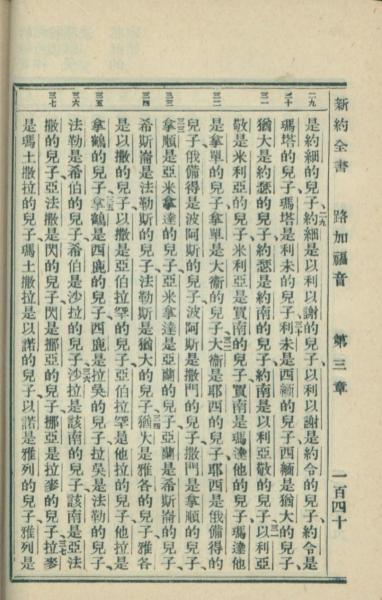 新約全書 路加福音 第三章 一百四十
二九 是約細的兒子、約細是以利以謝的兒子、以利以謝是約令的兒子、約令是
三十 瑪塔的兒子、瑪塔是利未的兒子、利未是西緬的兒子、西緬是猶大的兒子、
三一 猶大是約瑟的兒子、約瑟是約南的兒子、約南是以利亞敬的兒子、以利亞
敬是米利亞的兒子、米利亞是買南的兒子、買南是瑪達他的兒子、瑪達他
三二 是拿單的兒子、拿單是大衞的兒子、大衞是耶西的兒子、耶西是俄備得的
兒子、俄備得是波阿斯的兒子、波阿斯是撒門的兒子、撒門是拿順的兒子、
三三 拿順是亞米拿達的兒子、亞米拿達是亞蘭的兒子、亞蘭是希斯崙的兒子、
三四 希斯崙是法勒斯的兒子、法勒斯是猶大的兒子、猶大是雅各的兒子、雅各
是以撒的兒子、以撒是亞伯拉罕的兒子、亞伯拉罕是他拉的兒子、他拉是
三五 拿鶴的兒子、拿鶴是西鹿的兒子、西鹿是拉吳的兒子、拉吳是法勒的兒子、
三六 法勒是希伯的兒子、希伯是沙拉的兒子、沙拉是該南的兒子、該南是亞法
三七 撒的兒子、亞法撒是閃的兒子、閃是挪亞的兒子、挪亞是拉麥的兒子、拉麥
是瑪土撒拉的兒子、瑪土撒拉是以諾的兒子、以諾是雅列的兒子、雅列是